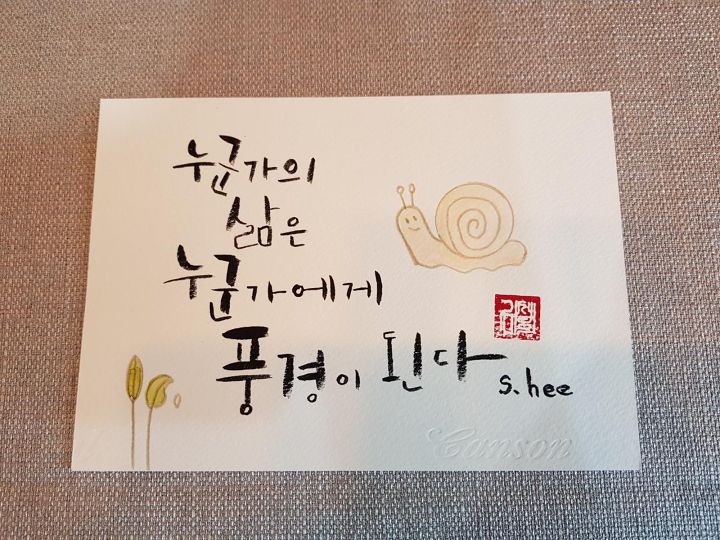 누군가의
삶은
누군가에게
풍경이 된다
s.hee
Canson